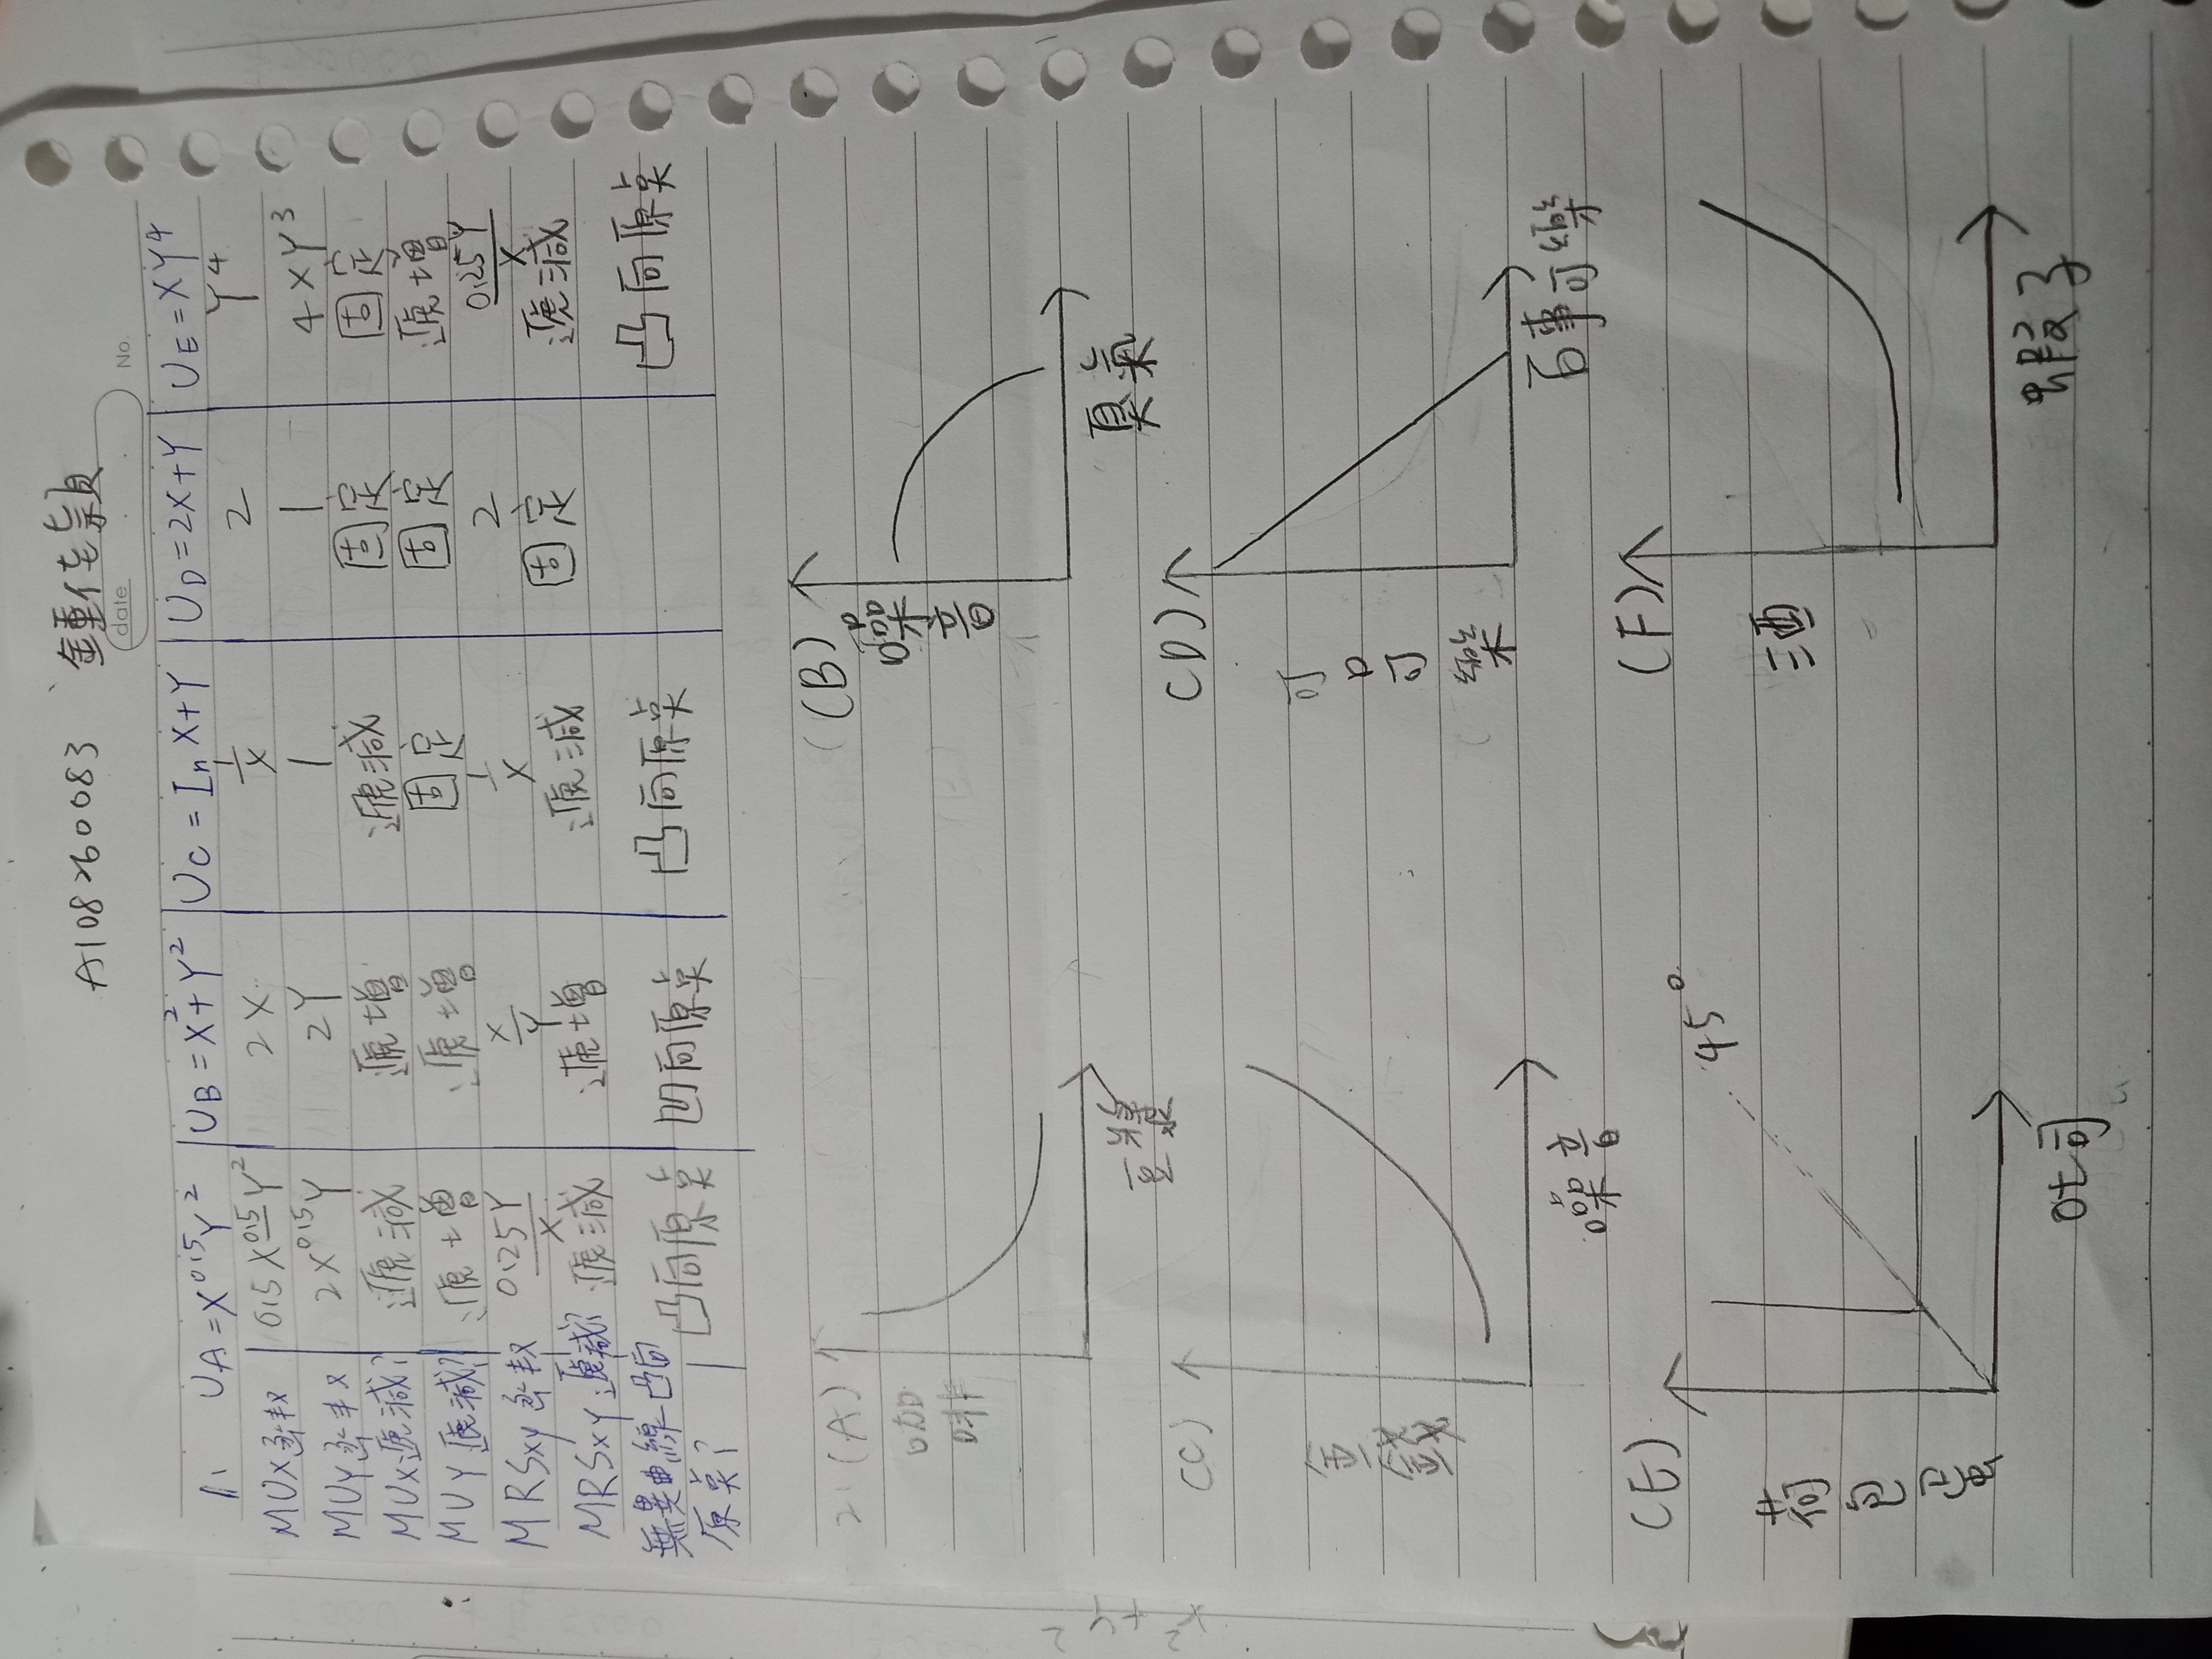 A108260083 鍾佳穎
date No.
1. UA=X^0.5Y^2 UB=X^2+Y^2 UC=In X+Y UD=2X+Y UE=XY^4
MUx函數 0.5X^0.5Y^2 2X 1/X 2 Y^4
MUy函數 2X^0.5Y 2Y 1 1 4XY^3
MUx遞減? 遞減 遞增 遞減 固定 固定
MUy遞減? 遞增 遞增 固定 固定 遞增
MRSxy函數 0.25Y/X X/Y 1/X 2 0.25Y/X
MRSxy遞減? 遞減 遞增 遞減 固定 遞減
無異曲線凸向原點? 凸向原點 凹向原點 凸向原點 凸向原點
2.(A)
咖啡
(B)
噪音
臭氣
(C)
金錢
噪音
(D)
可口可樂
百事可樂
(E)
45°
荷包蛋
吐司
(F)
酒
蝦子
X^2+Y^2